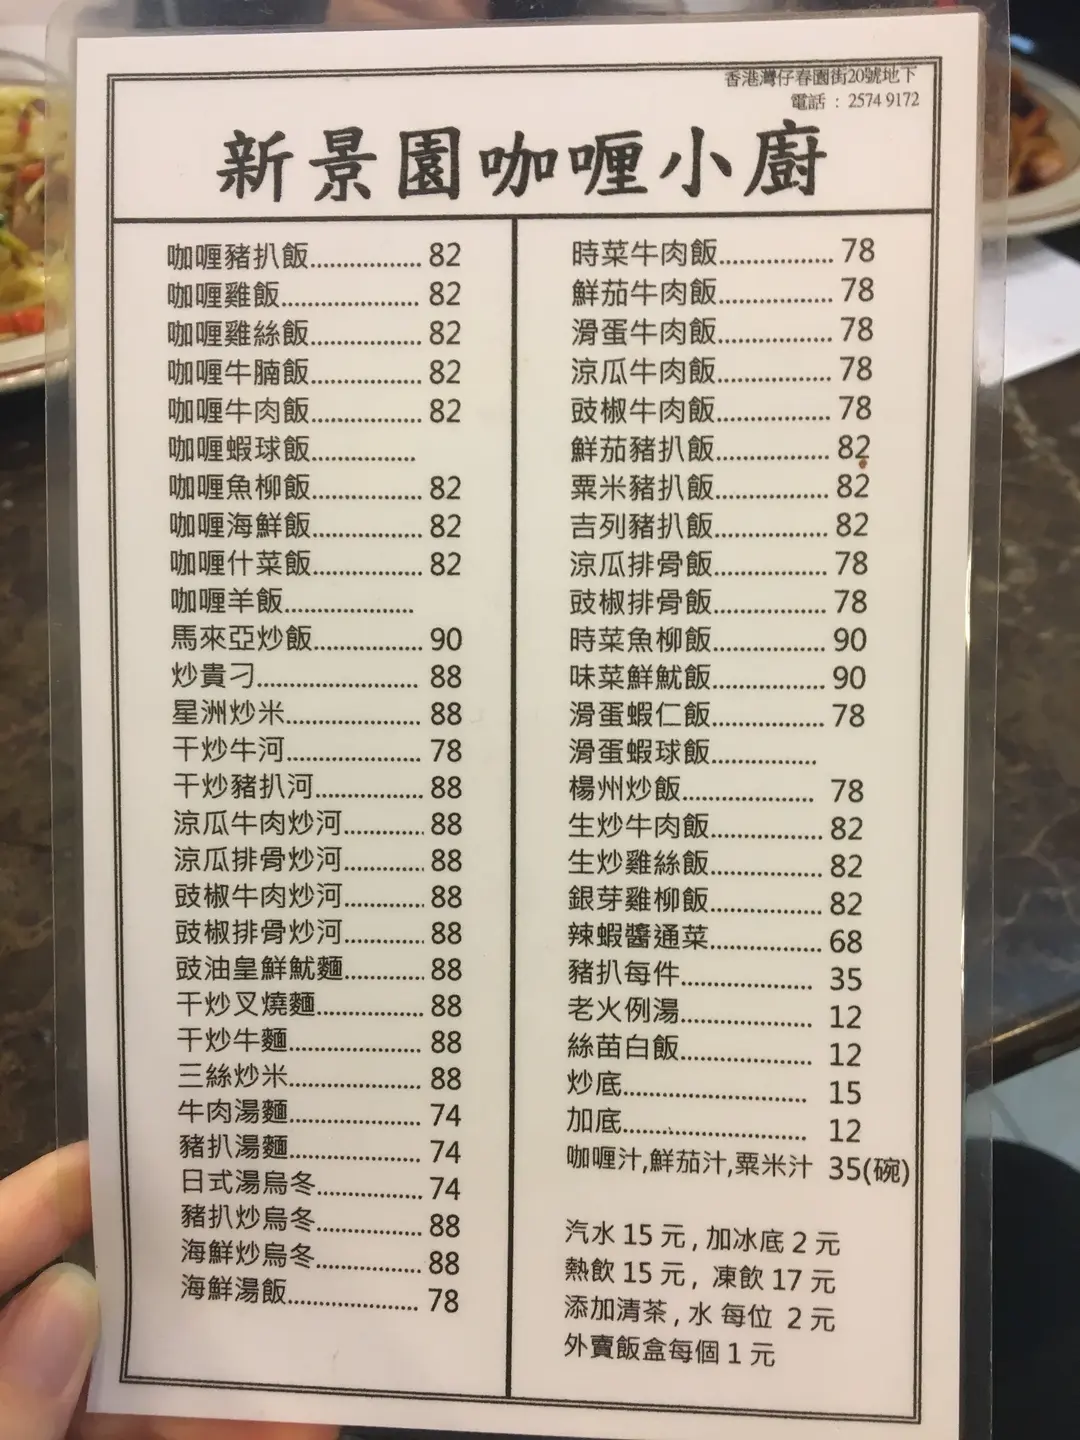 香港灣仔春園街20號地下
電話 : 2574 9172
新景園咖喱小廚
咖喱豬扒飯................ 82
咖喱雞飯.................... 82
咖喱雞絲飯................ 82
咖喱牛腩飯................ 82
咖喱牛肉飯................ 82
咖喱蝦球飯...............
咖喱魚柳飯................ 82
咖喱海鮮飯................ 82
咖喱什菜飯................ 82
咖喱羊飯...................
馬來亞炒飯................ 90
炒貴刁....................... 88
星洲炒米.................... 88
干炒牛河.................... 78
干炒豬扒河................ 88
涼瓜牛肉炒河............ 88
涼瓜排骨炒河............ 88
豉椒牛肉炒河............ 88
豉椒排骨炒河............ 88
豉油皇鮮魷麵............ 88
干炒叉燒麵................ 88
干炒牛麵.................... 88
三絲炒米.................... 88
牛肉湯麵.................... 74
豬扒湯麵.................... 74
日式湯烏冬................ 74
豬扒炒烏冬................ 88
海鮮炒烏冬................ 88
海鮮湯飯.................... 78
時菜牛肉飯................ 78
鮮茄牛肉飯................ 78
滑蛋牛肉飯................ 78
涼瓜牛肉飯................ 78
豉椒牛肉飯................ 78
鮮茄豬扒飯................ 82
粟米豬扒飯................ 82
吉列豬扒飯................ 82
涼瓜排骨飯................ 78
豉椒排骨飯................ 78
時菜魚柳飯................ 90
味菜鮮魷飯................ 90
滑蛋蝦仁飯................ 78
滑蛋蝦球飯...............
楊州炒飯................... 78
生炒牛肉飯................ 82
生炒雞絲飯................ 82
銀芽雞柳飯................ 82
辣蝦醬通菜................ 68
豬扒每件................... 35
老火例湯................... 12
絲苗白飯................... 12
炒底.......................... 15
加底.......................... 12
咖喱汁,鮮茄汁,粟米汁 35(碗)
汽水 15 元 , 加冰底 2 元
熱飲 15 元 , 凍飲 17 元
添加清茶 , 水 每位 2 元
外賣飯盒每個 1 元